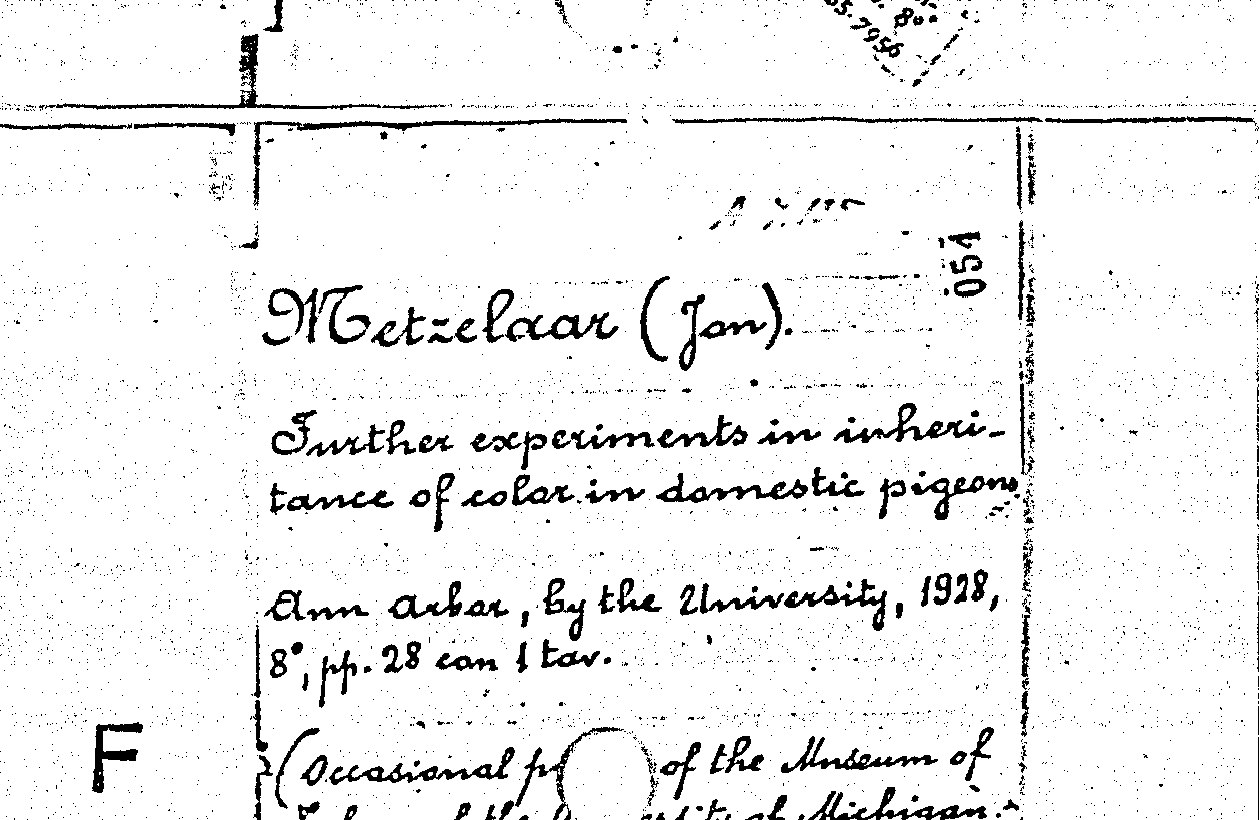 800
65.7956
051
Metzelaar (Jan).
Further experiments in inheri-
tance of color in domestic pigeons.
Ann Arbor, by the University, 1928,
8°, pp. 28 con 1 tav.
F
(Occasional of the Museum of
of Michigan.